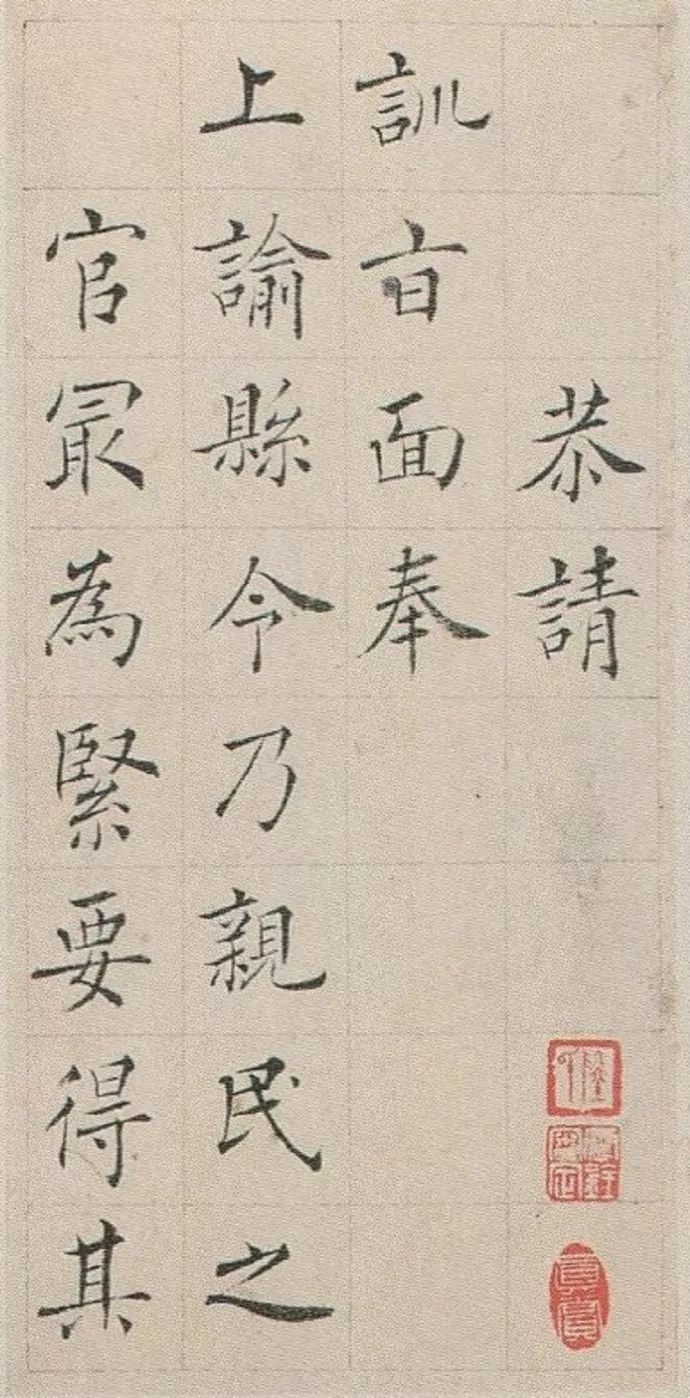 恭請
訓㫖面奉
上諭縣令乃親民之
官冣為緊要得其